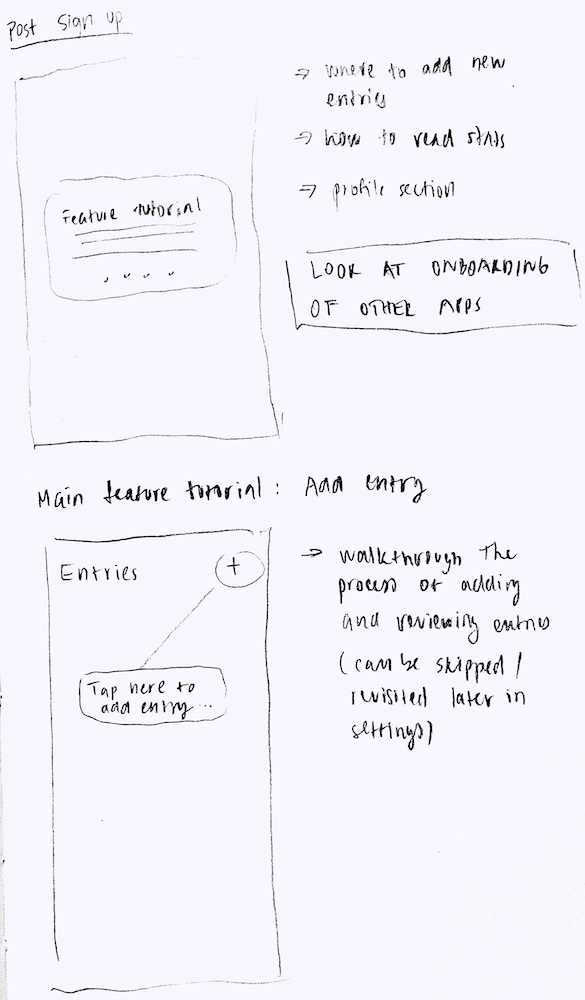 Post Sign up
→ where to add new
entries
→ how to read stats
→ profile section
Feature tutorial
LOOK AT ONBOARDING
OF OTHER APPS
Main feature tutorial: Add entry
Entries
+
Tap here to
add entry...
→ walkthrough the
process of adding
and reviewing entries
(can be skipped /
revisited later in
settings)